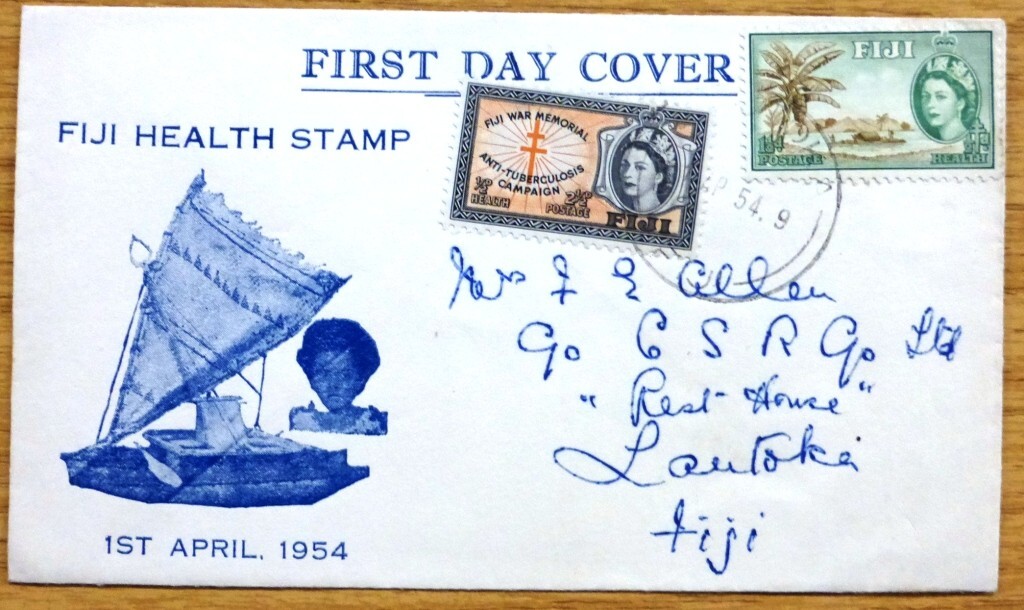 FIRST DAY COVER
FIJI HEALTH STAMP
FIJI WAR MEMORIAL
ANTI-TUBERCULOSIS
CAMPAIGN
½D 2½D
HEALTH POSTAGE
FIJI
FIJI
POSTAGE HEALTH
54.9
Mrs F E Allen
C/o C S R Co Ltd
"Rest House"
Lautoka
Fiji
1ST APRIL. 1954